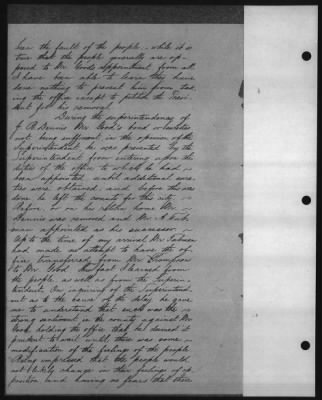 been the fault of the people, while it is
true that the people generally are op-
posed to Mr. Woods appointment from all
I have been able to learn they have
done nothing to prevent him from tak-
ing the office except to petition the Presi-
dent for his removal.
During the superintendency of
J. R. Dennis Mr. Wood's bond or sureties
not being sufficient, in the opinion of the
Superintendent, he was prevented by the
Superintendent from entering upon the
duties of the office to which he had
been appointed until additional sure-
ties were obtained, and before this was
done he left the county for this city,
Before, or on his return home Mr.
Dennis was removed and Mr. A
was appointed as his successor.
Up to the time of my arrival Mr.
had made no attempt to have the of-
fice transferred from Mr. Thompson
to Mr. Wood this fact I learned from
the people as well as from the Superin-
tendent. On inquiring of the Superintend-
ent as to the cause of the delay he gave
me to understand that such was the
strong sentiment in the county against Mr.
Wood holding the office that he deemed it
prudent to wait until there was some
modification of the feelings of the people.
Being impressed that the people would
not likely change in their feelings of op-
position and having no fears that there